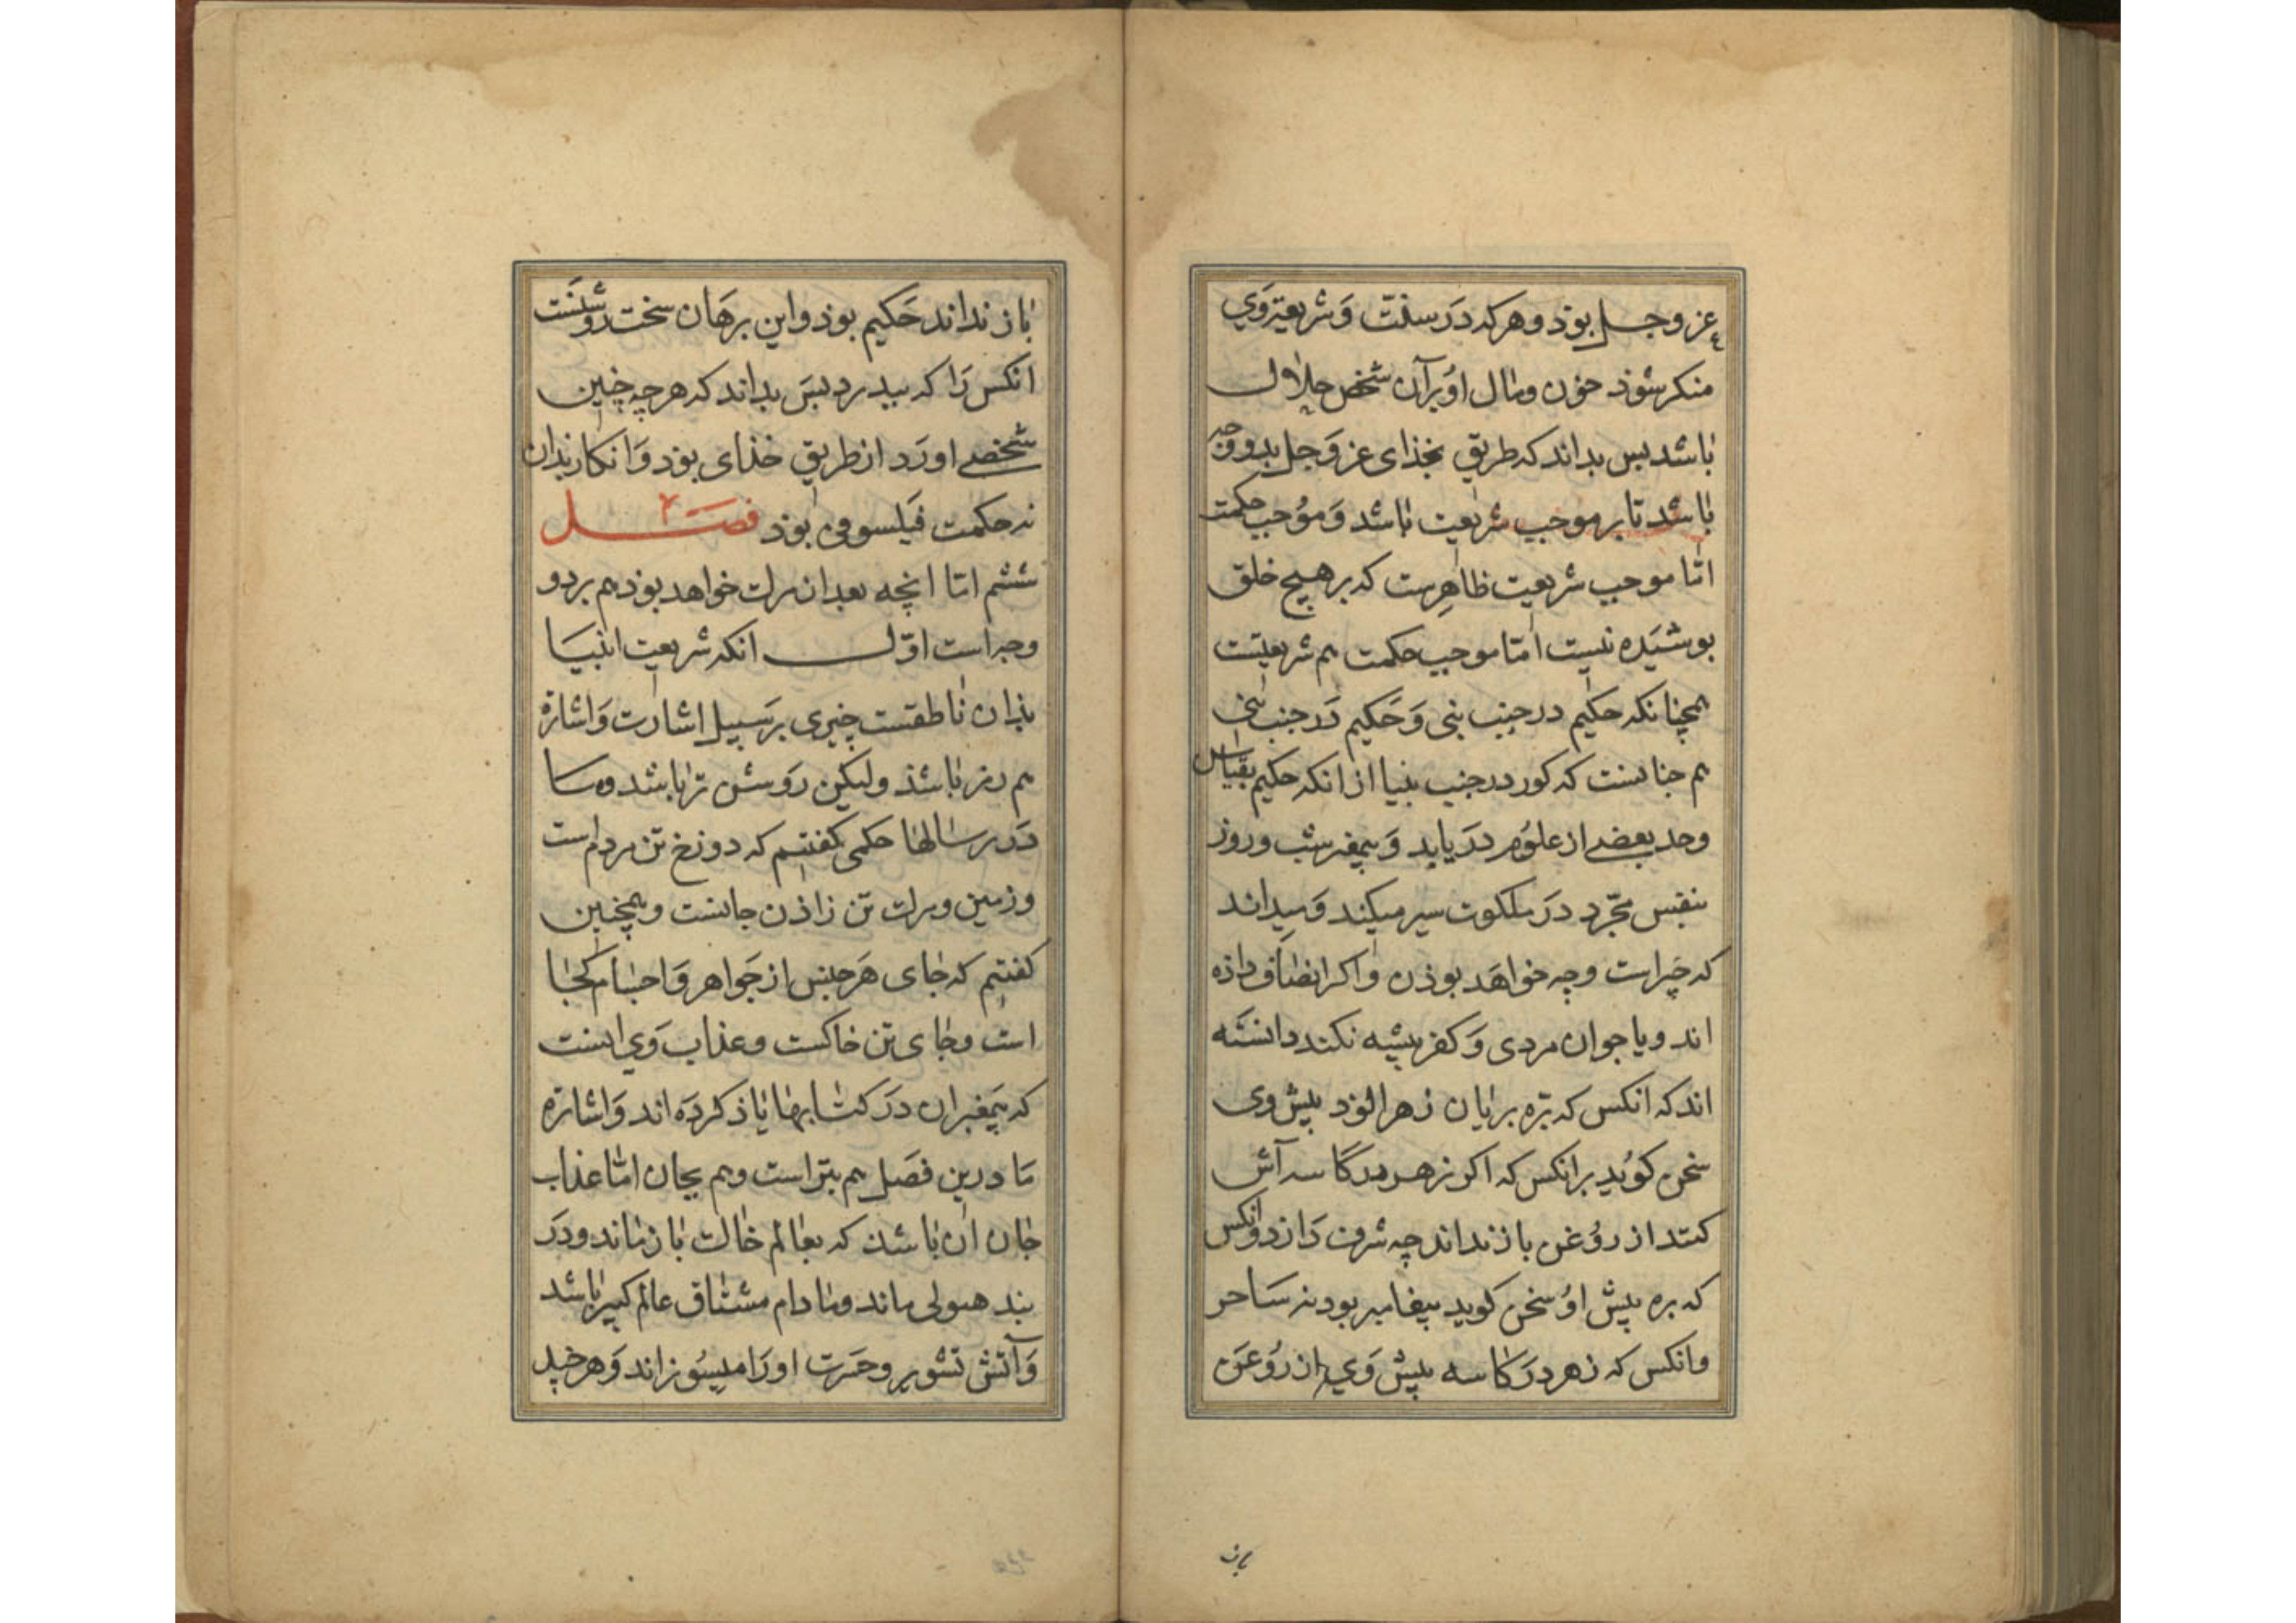 عز وجل بوذ و هر که در سنّت و شریعتِ وی
منکر شوذ خون و مال او بر آن شخص حلال
باشد بس بداند که طریق بخذای عز و جل بدو وجه
باشد تا بر موجب شریعت باشد و موُجب حکمت
امّا موجب شریعت ظاهرست که بر هیچ خلق
بوشیده نیست امّا موجب حکمت هم شریعتست
همچنانکه حکیم در جنب نبی و حکیم در جنب نبی
هم جنانست که کور در جنب بنیا از انکه حکیم بقیاس
وحد بعضے از علوُم دریابد و پیمغبر شب و روز
بنفس مجّرد در ملکوت سیر میکند و میداند
که چراست و چه خواهد بوذن و اکر انضاف داذه
اند و یا جوان مردی و کفر پیشه نکند دانسته
اند که انکس که برّه بریان زهر الوذ پیش وی
سخن کوُید بر انکس که اکر زهر در کاسه آش
کنند از روُغن باز نداند چه شرف دارد و انکس
که بره پیش اوُ سخن کوید پیغامبر بود نه ساحر
و انکس که زهر در کاسه پیش وی از روُغن
باز
باز نداند حکیم بوذ و این برهان سخت روشنست
انکس را که بیدرد بس بداند که هر چه چنین
شخصے اورد از طریق خذای بوذ و انکار بذان
نه حکمت فیلسوفی بوذ فصل
ششم امّا انچه بعد از مرک خواهد بوذ هم بر دو
وجه است اوّل انکه شریعت انبیا
بذان ناطقست چیزی بر سبیل اشارت و اشارة
هم رمز باشذ ولیکن روشن تر باشد و ما
در رسالهاٴ حکمی کفتیم که دوزخ تن مردم است
و زمین و مرک تن زاذن جانست و همچنین
کفتیم که جای هر جنس از جواهر و اجسام کجا
است و جای تن خاکست و عذاب وی انست
که پیمغبران در کتابها یاذ کرده اند و اشارة
ما درین فصل هم بتن است و هم بجان امّا عذاب
جان ان باشذ که بعالم خاک باز ماند و در
بند هیولی ماند و مادام مشتاق عالم کبیر باشد
و آتش تشویر و حسرت اورا میسوُزاند و هر چند